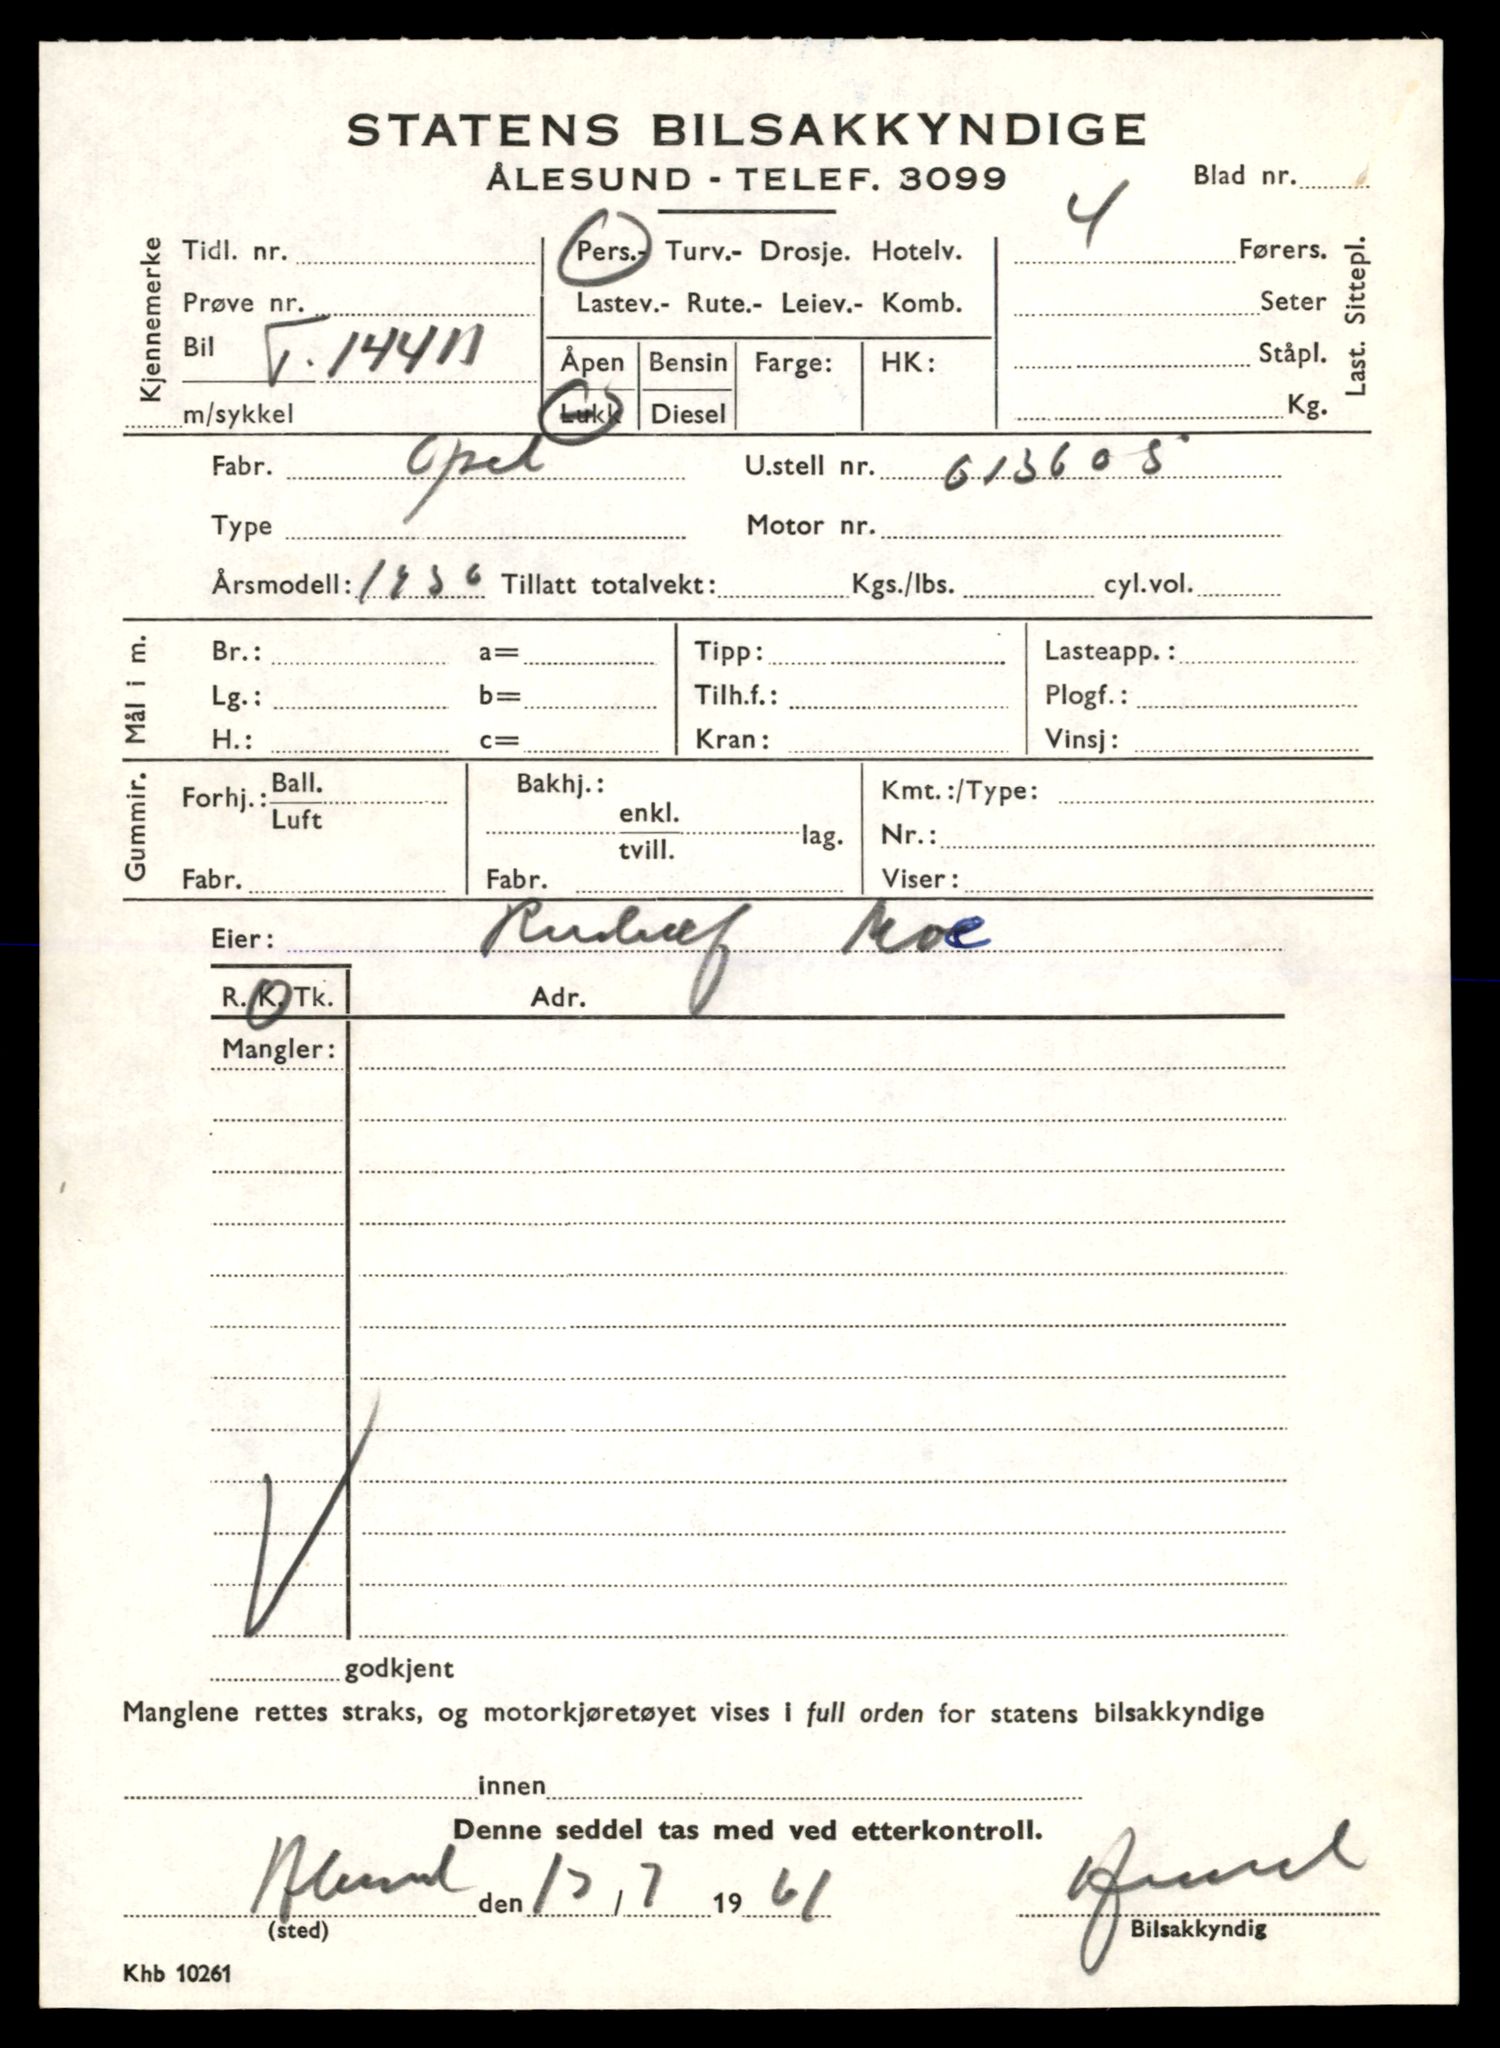 STATENS BILSAKKYNDIGE
ÅLESUND - TELEF. 3099
Blad nr.
Kjennemerke
Tidl. nr.
Prøve nr.
Bil T.
m/sykkel
Pers.- Turv.- Drosje. Hotelv.
Lastev.- Rute.- Leiev.- Komb.
Åpen Bensin Farge: HK:
Lukk Diesel
4 Førers.
Seter
Ståpl.
Kg.
Last. Sittepl.
Fabr. Opel U.stell nr. 613605
Type Motor nr.
Årsmodell: 1936 Tillatt totalvekt: Kgs./lbs. cyl.vol.
Mål i m.
Br.: a= Tipp: Lasteapp.:
Lg.: b= Tilh.f.: Plogf.:
H.: c= Kran: Vinsj:
Gummir.
Forhj.: Ball.
Luft
Fabr.
Bakhj.:
enkl.
tvill. lag.
Fabr.
Kmt.:/Type:
Nr.:
Viser:
Eier: Moe
R. K. Tk. Adr.
Mangler:
godkjent
Manglene rettes straks, og motorkjøretøyet vises i full orden for statens bilsakkyndige
innen
Denne seddel tas med ved etterkontroll.
Ålesund den / 7 19 61
(sted) Bilsakkyndig
Khb 10261